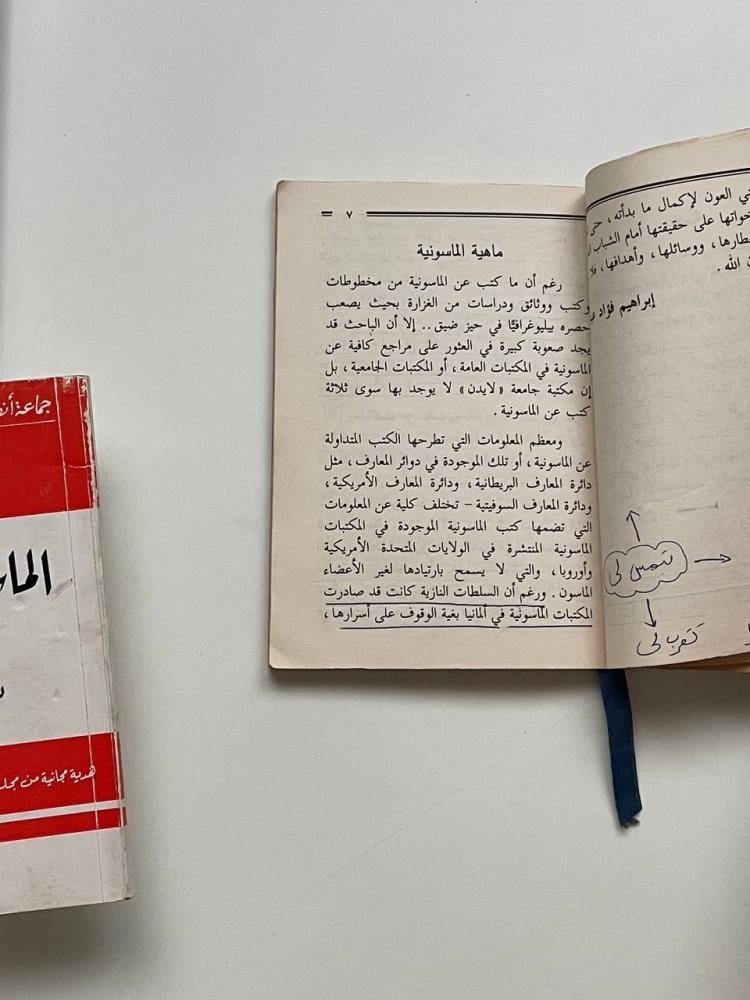 ني العون لإكمال ما بدأته ، حتى
خواتها على حقيقتها أمام الشباب
طارها ، ووسائلها ، وأهدافها ، فلا
ن الله .
إبراهيم فؤاد
تتمس لي
تتعرب لي
= ٧
ماهية الماسونية
رغم أن ما كتب عن الماسونية من مخطوطات
وكتب ووثائق ودراسات من الغزارة بحيث يصعب
حصره بيليوغرافيًا في حيز ضيق .. إلا أن الباحث قد
يجد صعوبة كبيرة في العثور على مراجع كافية عن
الماسونية في المكتبات العامة ، أو المكتبات الجامعية ، بل
إن مكتبة جامعة « لايدن » لا يوجد بها سوى ثلاثة
كتب عن الماسونية .
ومعظم المعلومات التي تطرحها الكتب المتداولة
عن الماسونية ، أو تلك الموجودة في دوائر المعارف ، مثل
دائرة المعارف البريطانية ، ودائرة المعارف الأمريكية ،
ودائرة المعارف السوفيتية – تختلف كلية عن المعلومات
التي تضمها كتب الماسونية الموجودة في المكتبات
الماسونية المنتشرة في الولايات المتحدة الأمريكية
وأوروبا ، والتي لا يسمح بارتيادها لغير الأعضاء
الماسون . ورغم أن السلطات النازية كانت قد صادرت
المكتبات الماسونية في ألمانيا بغية الوقوف على أسرارها ،
جماعة أنص
الماس
هدية مجانية من مجلة